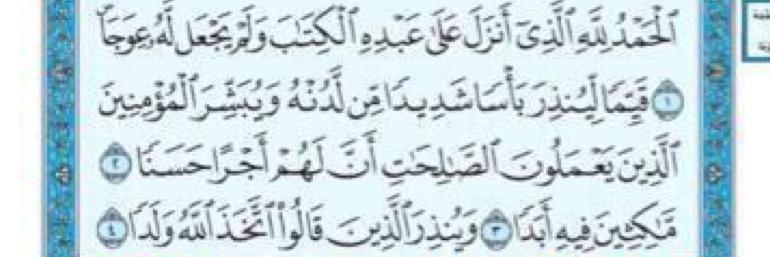 ٱلْحَمْدُ لِلَّهِ ٱلَّذِىٓ أَنزَلَ عَلَىٰ عَبْدِهِ ٱلْكِتَٰبَ وَلَمْ يَجْعَل لَّهُۥ عِوَجَاۜ
١ قَيِّمًا لِّيُنذِرَ بَأْسًا شَدِيدًا مِّن لَّدُنْهُ وَيُبَشِّرَ ٱلْمُؤْمِنِينَ
ٱلَّذِينَ يَعْمَلُونَ ٱلصَّٰلِحَٰتِ أَنَّ لَهُمْ أَجْرًا حَسَنًا ٢
مَّٰكِثِينَ فِيهِ أَبَدًا ٣ وَيُنذِرَ ٱلَّذِينَ قَالُوا۟ ٱتَّخَذَ ٱللَّهُ وَلَدًا ٤